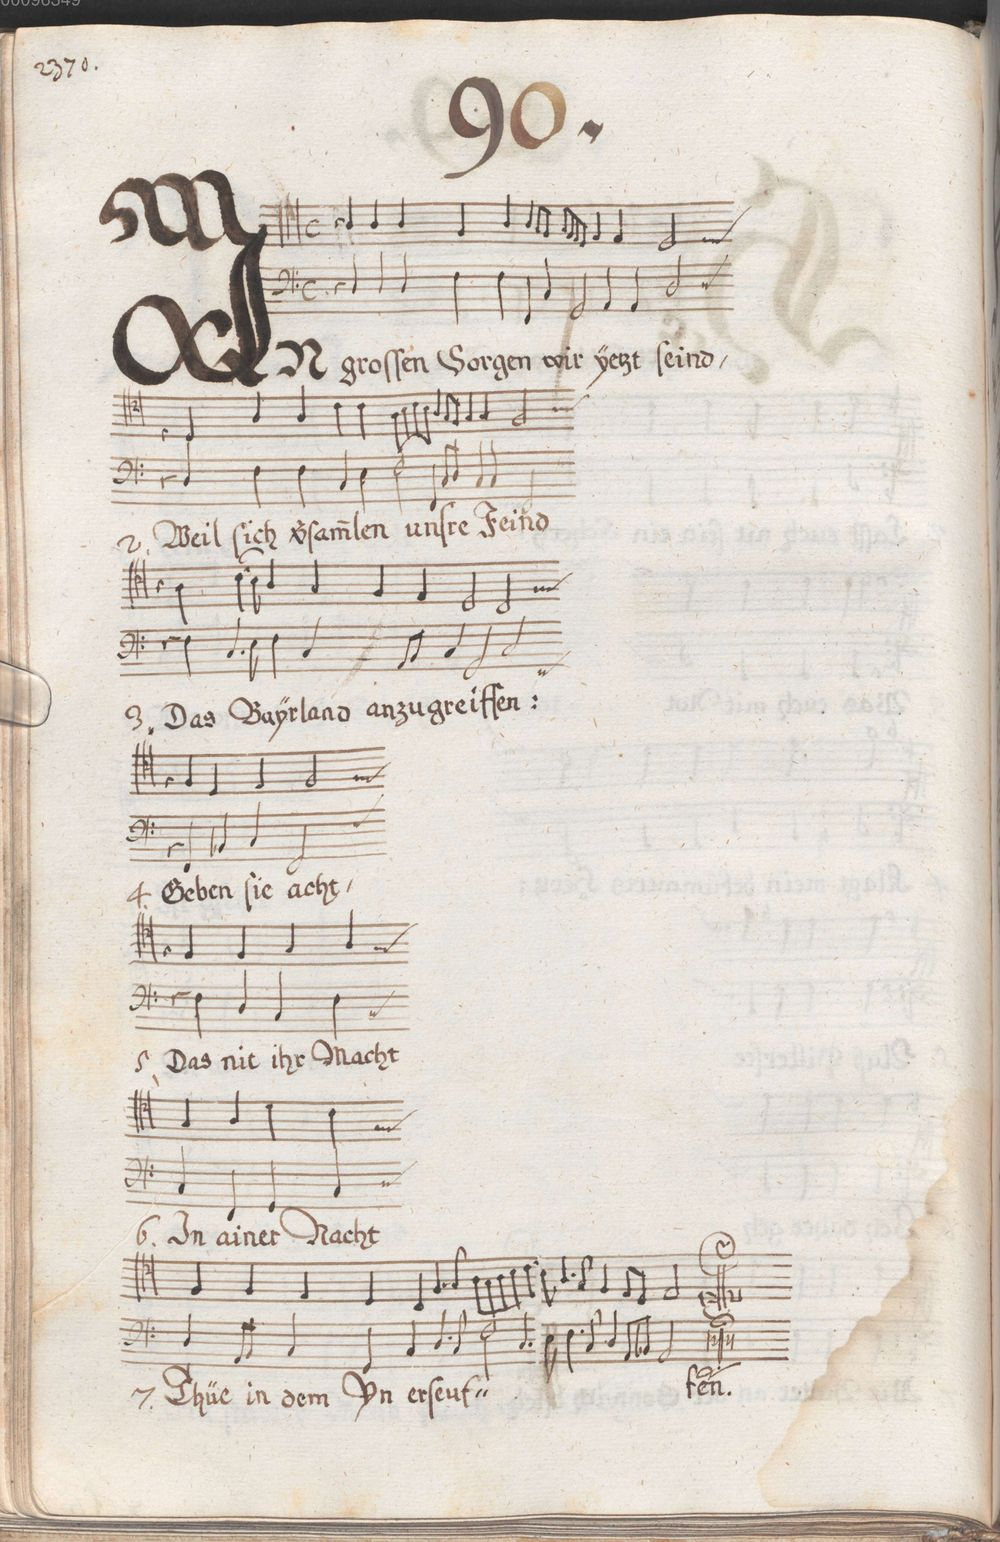 00096349
2370.
90.
IN grossen Sorgen wir ÿetzt seind,
2. Weil sich v̄sam̄len unsre Feind
3. Das Baÿrland anzugreiffen:
4. Geben sie acht,
5. Das nit ihr Macht
6. In ainer Nacht
7. Thüe in dem Yn erseuf"
fen.